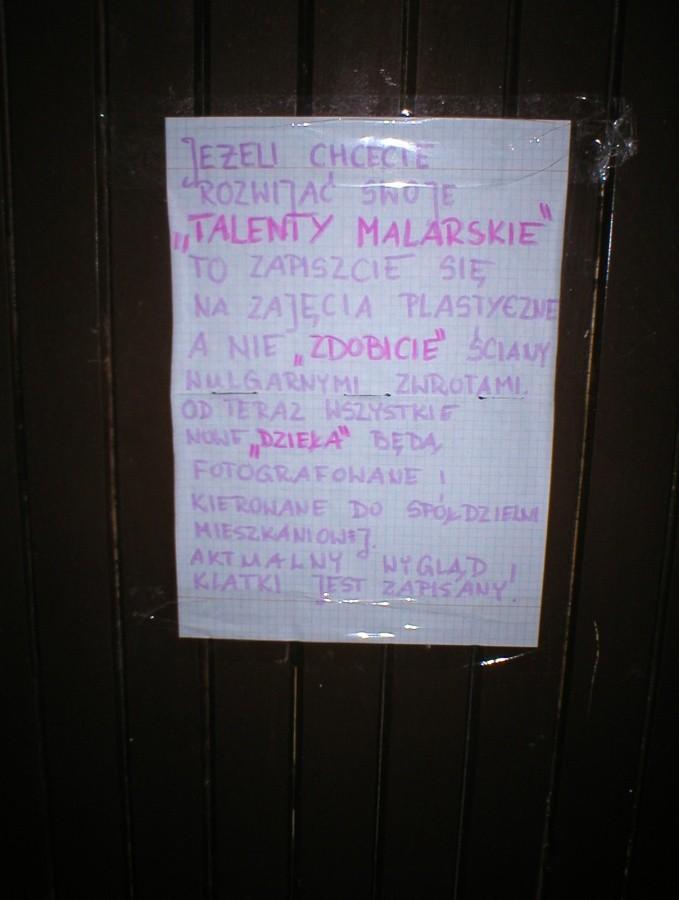 JEŻELI CHCECIE
ROZWIJAĆ SWOJE
„TALENTY MALARSKIE"
TO ZAPISZCIE SIĘ
NA ZAJĘCIA PLASTYCZNE
A NIE „ZDOBICIE" ŚCIANY
WULGARNYMI ZWROTAMI.
OD TERAZ WSZYSTKIE
NOWE „DZIEŁA" BĘDĄ
FOTOGRAFOWANE I
KIEROWANE DO SPÓŁDZIELNI
MIESZKANIOWEJ.
AKTUALNY WYGLĄD
KLATKI JEST ZAPISANY!